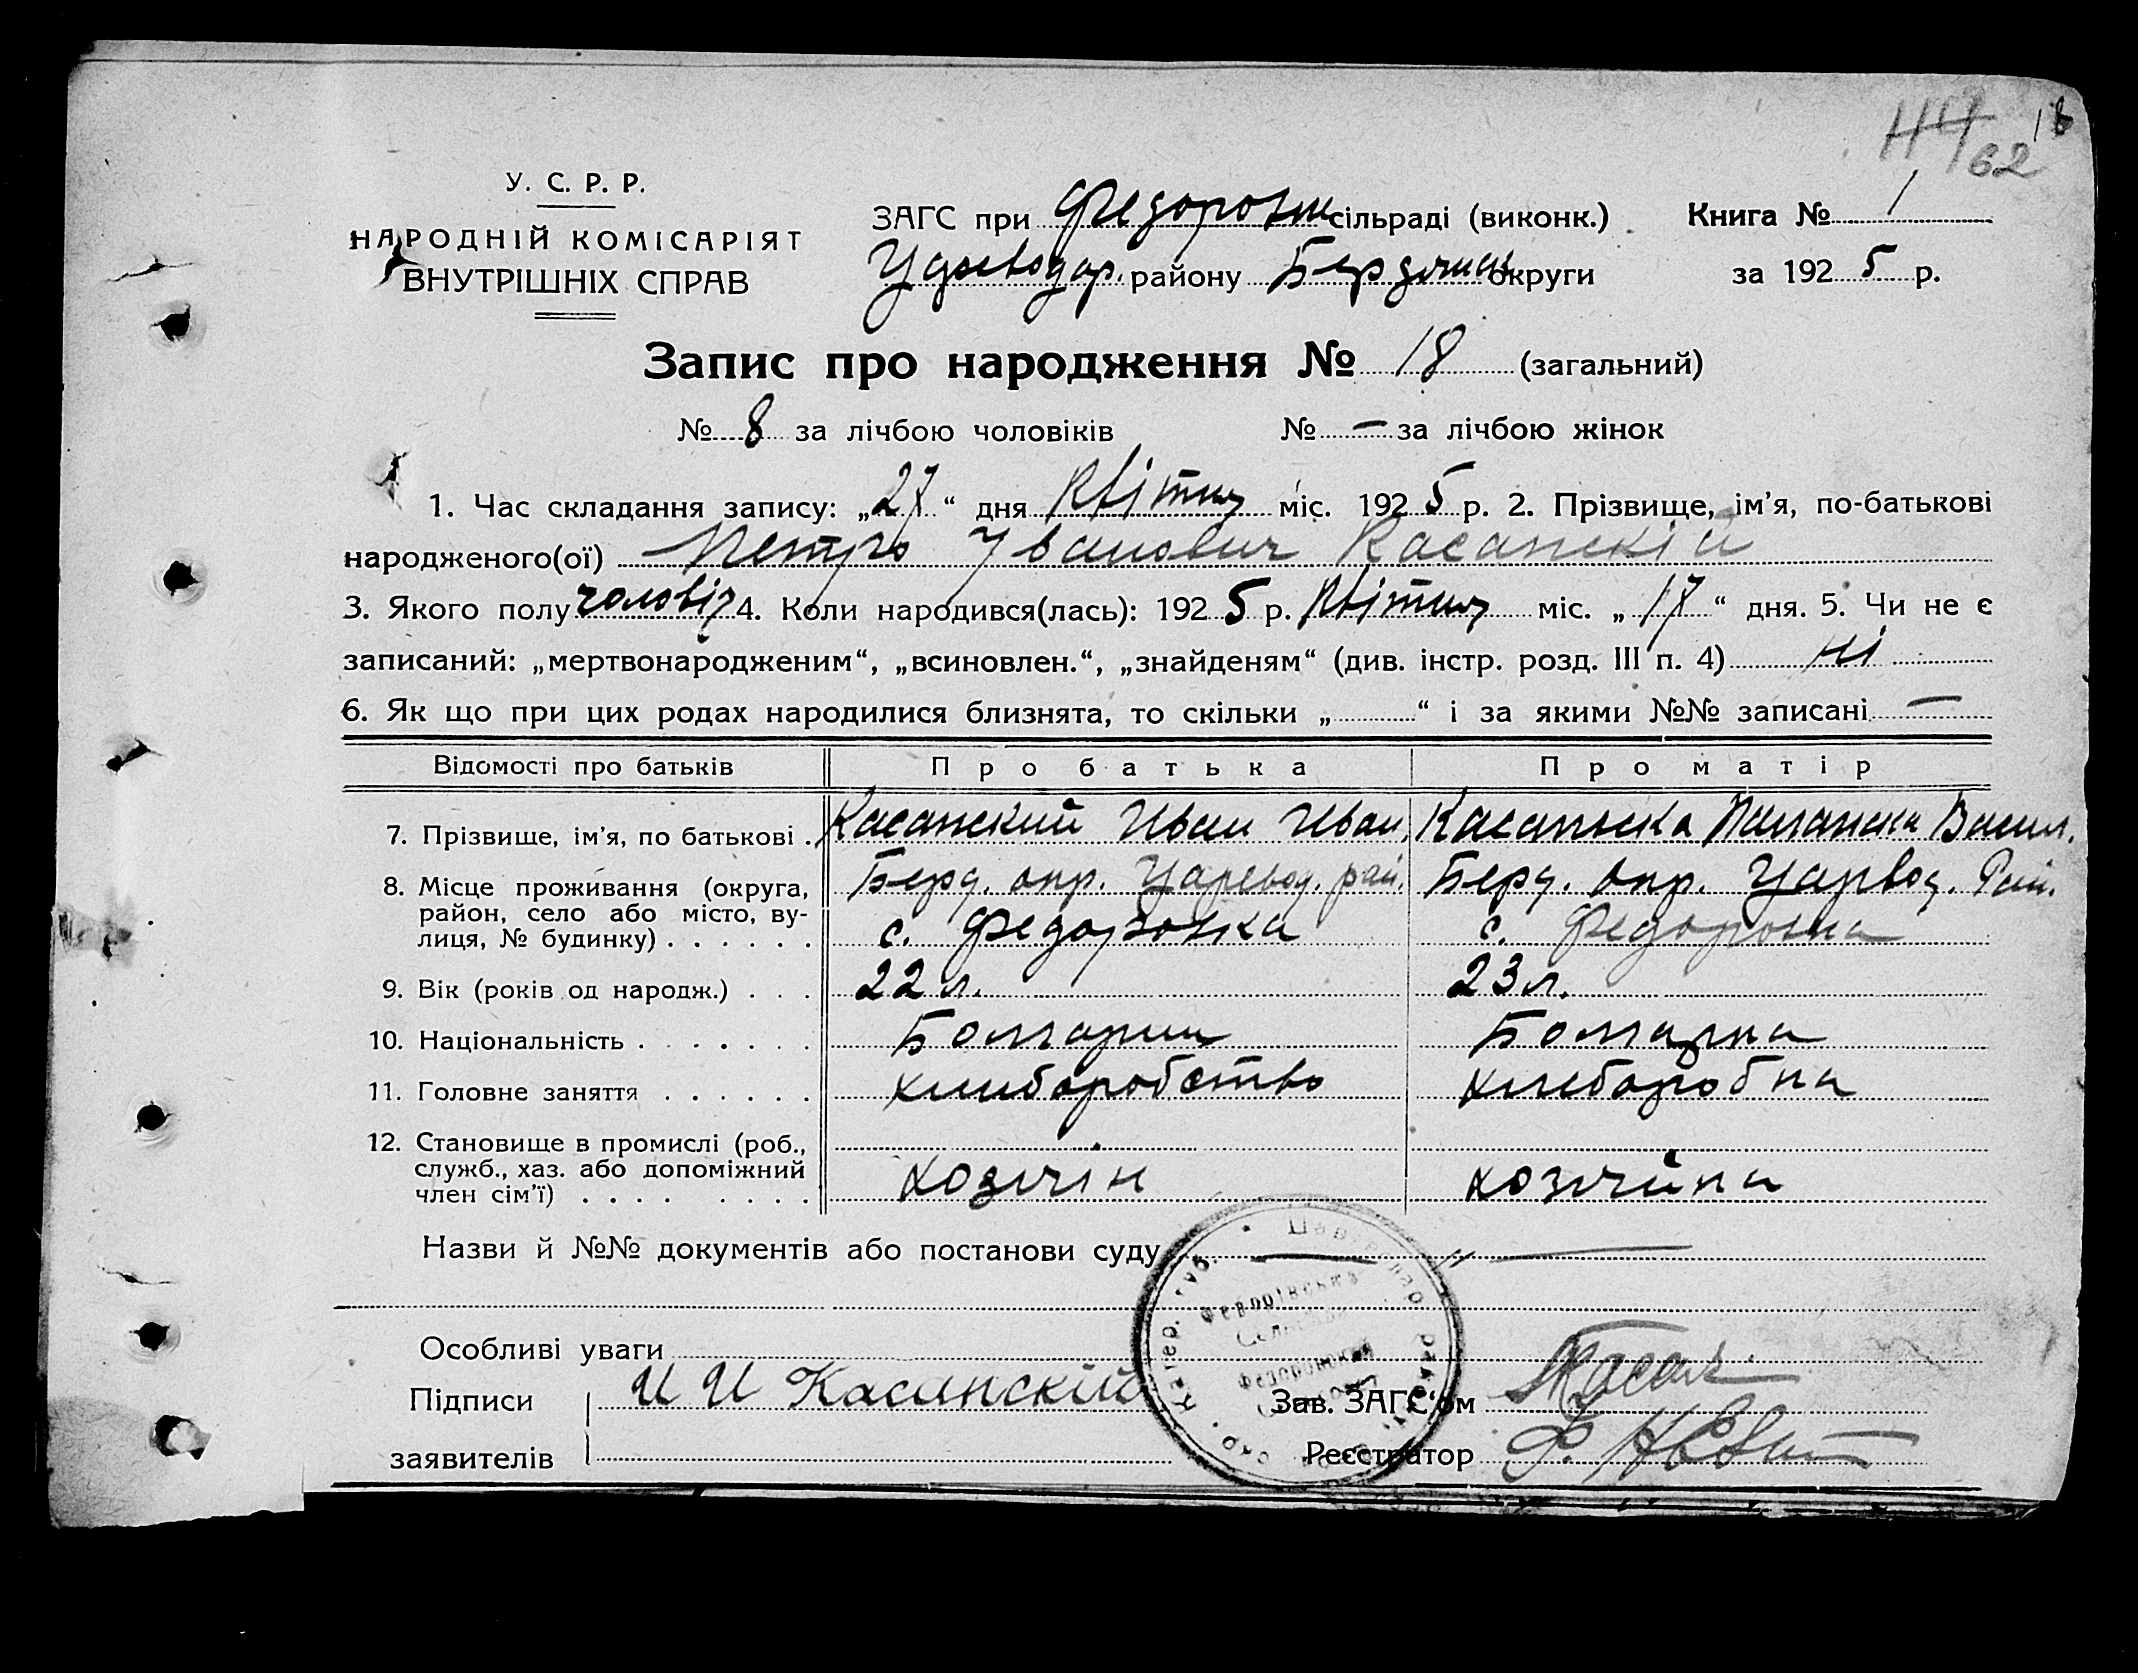 18
62
У. С. Р. Р.
НАРОДНІЙ КОМІСАРІЯТ
ВНУТРІШНІХ СПРАВ
ЗАГС при Федоровк сільраді (виконк.) Книга № 1
району округи за 192 5 р.
Запис про народження № 18 (загальний)
№ 8 за лічбою чоловіків № — за лічбою жінок
1. Час складання запису: „27“ дня Квітня міс. 192 5 р. 2. Прізвище, ім'я, по-батькові
народженого(ої) Петро Іванович Касапскій
3. Якого полу чоловіч 4. Коли народився(лась): 192 5 р. Квітня міс. „17“ дня. 5. Чи не є
записаний: „мертвонародженим“, „всиновлен.“, „знайденям“ (див. інстр. розд. III п. 4) ні
6. Як що при цих родах народилися близнята, то скільки „ “ і за якими №№ записані —
Відомості про батьків Про батька Про матір
7. Прізвище, ім'я, по батькові . Касапский Иван Иван. Касапска Василь.
8. Місце проживання (округа, Берд. окр. Царевод. рай. Берд. окр. Царвод. Рай.
район, село або місто, ву- с. Федоровка с. Федоровка
лиця, № будинку) . . . . . .
9. Вік (років од народж.) . . . 22 л. 23 л.
10. Національність . . . . . . . Болгарин Болгарка
11. Головне заняття . . . . . . хлиборобство хлиборобка
12. Становище в промислі (роб.,
служб., хаз. або допоміжний хозяін хозяйка
член сім'ї) . . . . . . . .
Назви й №№ документів або постанови суду — „ —
Особливі уваги
Підписи И И Касапскій Зав. ЗАГС'ом
заявителів Реєстратор